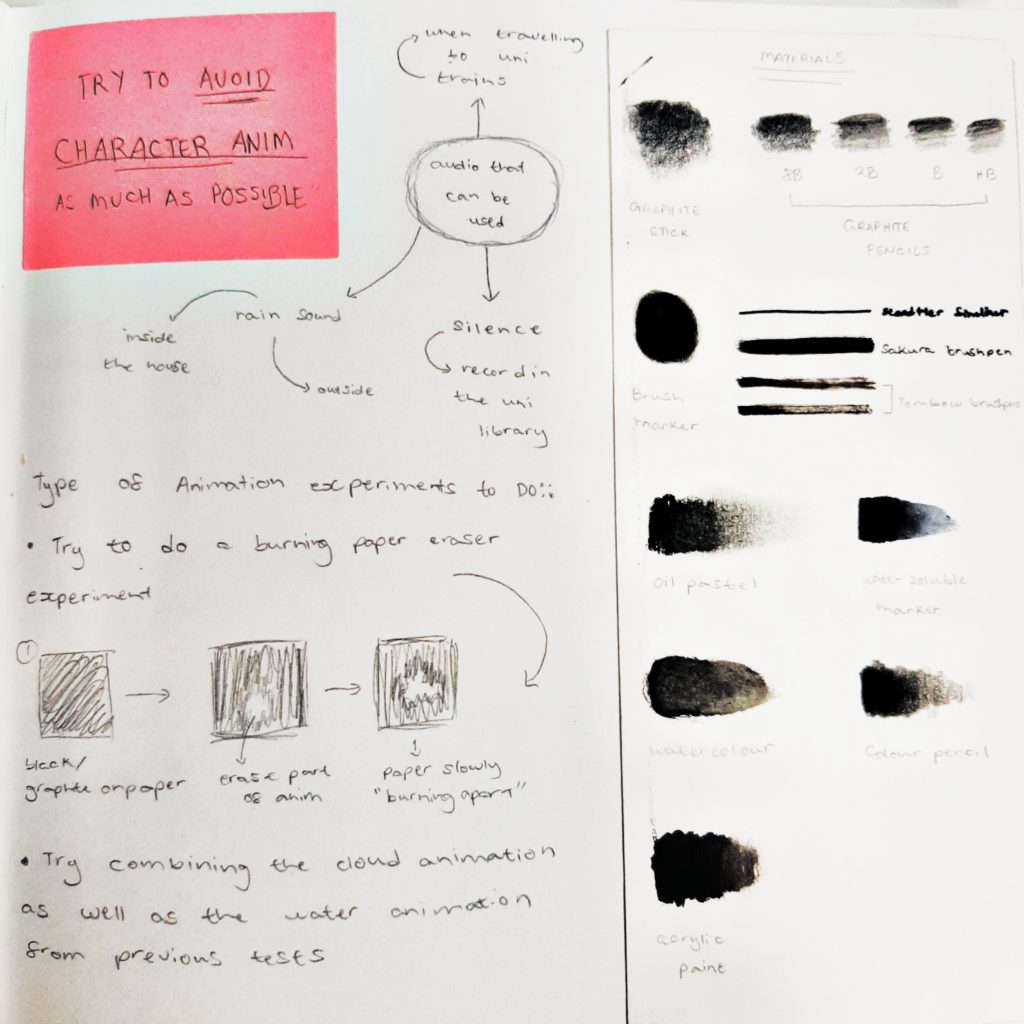 TRY TO AVOID
CHARACTER ANIM
AS MUCH AS POSSIBLE
when travelling
to uni
trains
audio that
can be
used
rain sound
inside
the house
outside
silence
record in
the uni
library
Type of Animation experiments to DO::
• Try to do a burning paper eraser
experiment
1
black/
graphite on paper
erase part
of anim
paper slowly
"burning apart"
• Try combining the cloud animation
as well as the water animation
from previous tests
MATERIALS
GRAPHITE
STICK
8B 2B B HB
GRAPHITE
PENCILS
Brush
marker
staedtler fineliner
Sakura brushpen
Tombow brushpens
oil pastel
water soluble
marker
watercolour
Colour pencil
acrylic
paint